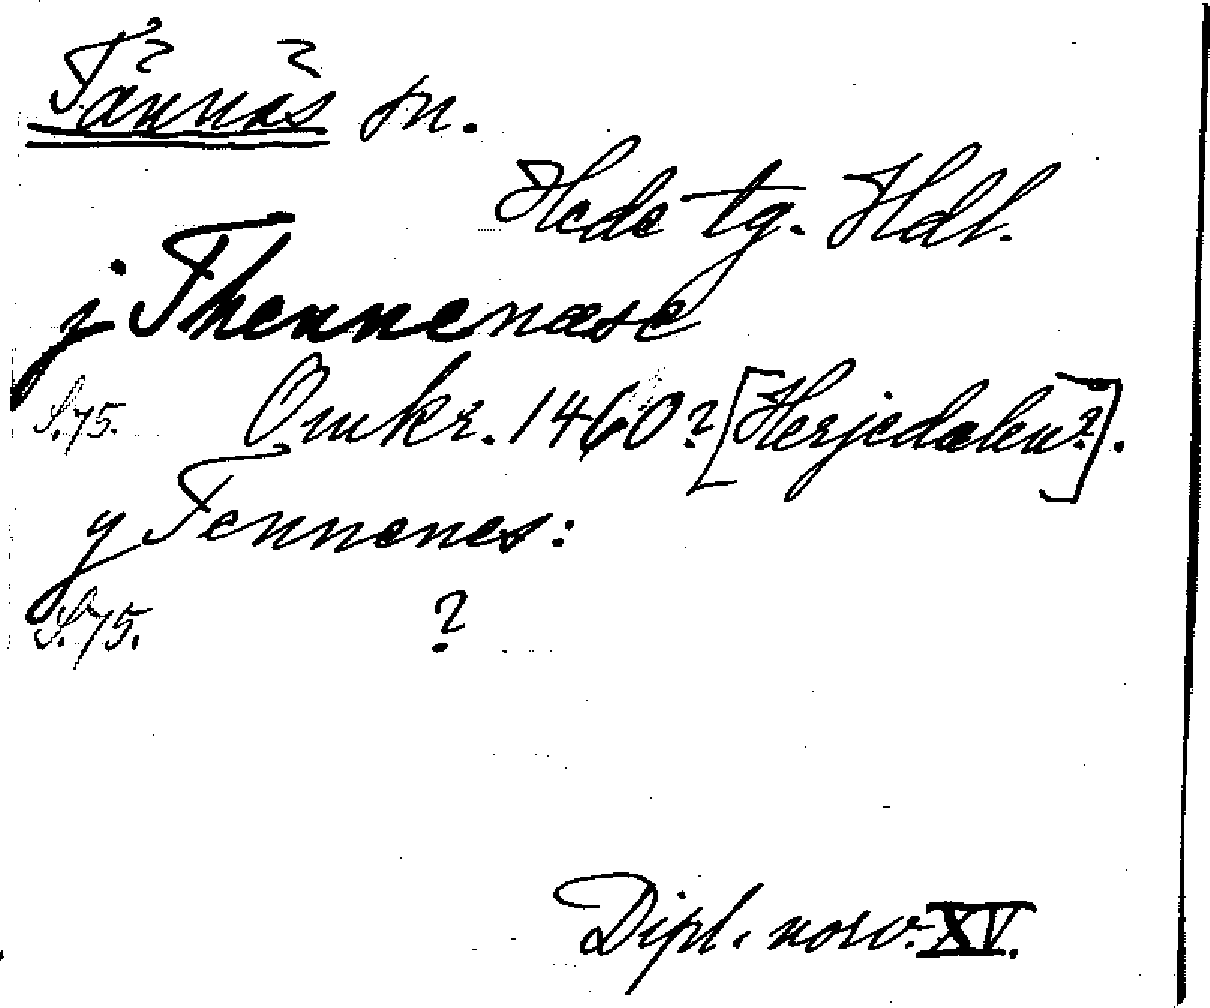 Tännäs sn.
Hede tg. Hdl.
j Thennenæse
S. 75. Omkr. 1460? [Herjedalen?].
y Tennenes:
S. 75. ?
Dipl. norv. XV.